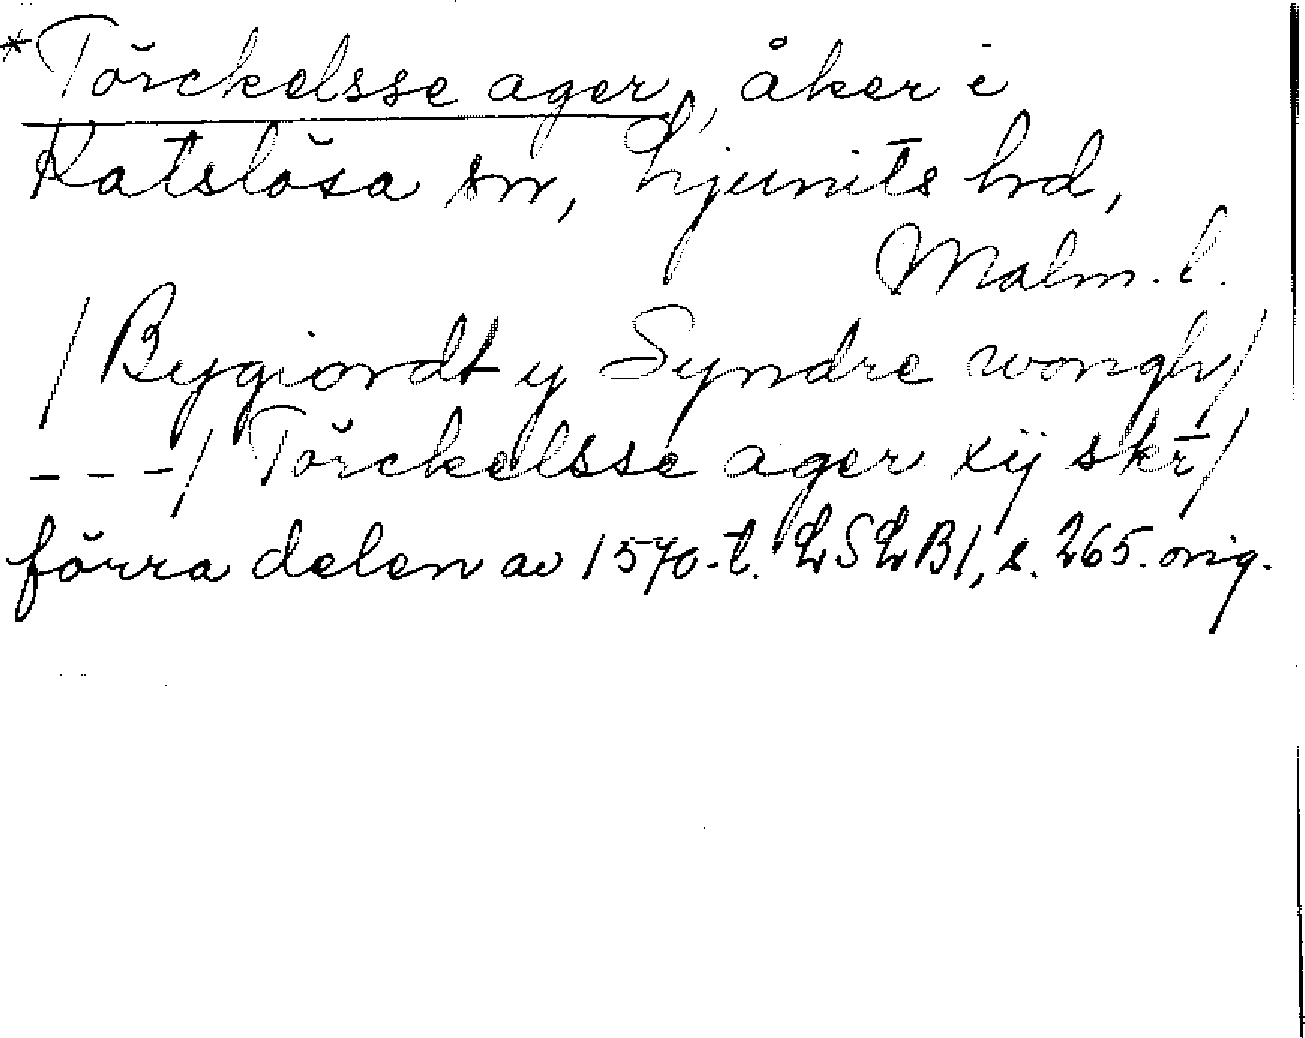 *Törckelsse ager, åker i
Katslösa sn, Ljunits hrd,
Malm. l.
/ Bygiordt y Syndre wongh/
- - -/ Törckelsse ager xij skr̄/
förra delen av 1570-t. LSLB1, s. 265. orig.